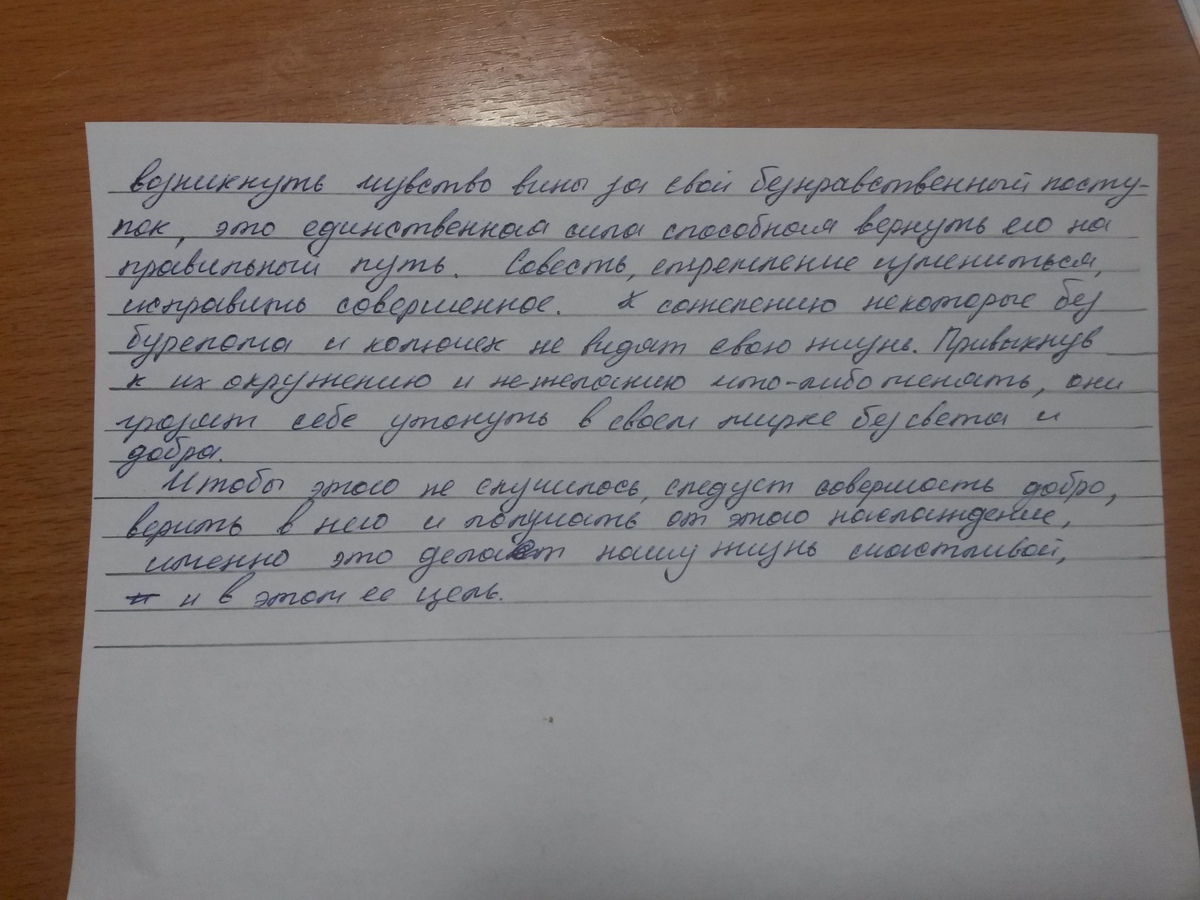 возникнуть чувство вины за свой безнравственный посту-
пок, это единственная сила способная вернуть его на
правильный путь. Совесть, стремление измениться,
исправить совершенное. К сожелению некоторые без
бурелома и колючек не видят свою жизнь. Привыкнув
к их окружению и не желанию что-либо менять, они
грозят себе утонуть в своем мирке без света и
добра.
Чтобы этого не случилось, следует совершать добро,
верить в него и получать от этого наслаждение,
именно это делает нашу жизнь счастливой,
и в этом ее цель.